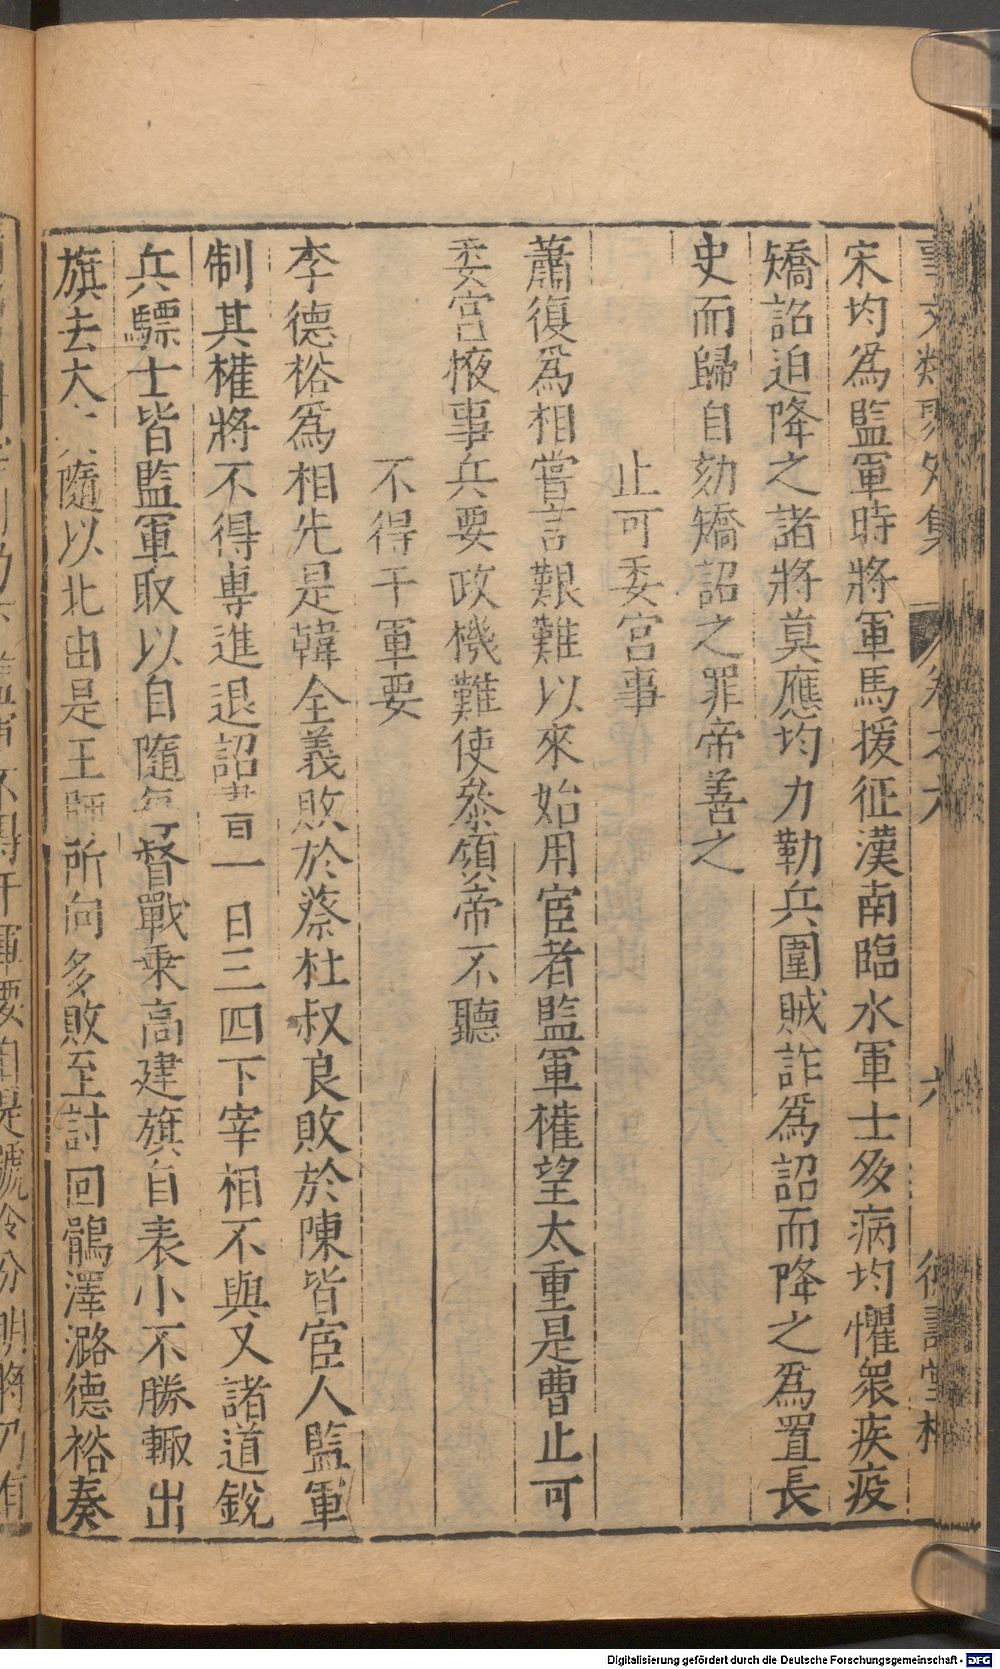 事文類聚外集 卷之六 六 德壽堂梓
宋均爲監軍時將軍馬援征漢南臨水軍士多病均懼衆疾疫
矯詔迫降之諸將莫應均力勒兵圍賊詐爲詔而降之爲置長
史而歸自劾矯詔之罪帝善之
止可委宮事
蕭復爲相嘗言艱難以來始用宦者監軍權望太重是曹止可
委宮掖事兵要政機難使叅領帝不聽
不得干軍要
李德裕爲相先是韓全義敗於蔡杜叔良敗於陳皆宦人監軍
制其權將不得專進退詔書一日三四下宰相不與又諸道銳
兵驃士皆監軍取以自隨每督戰乘高建旗自表小不勝輙出
旗去大 隨以北由是王師所向多敗至討回鶻澤潞德裕奏
不得干軍要自是號令分明將乃有
Digitalisierung gefördert durch die Deutsche Forschungsgemeinschaft - DFG